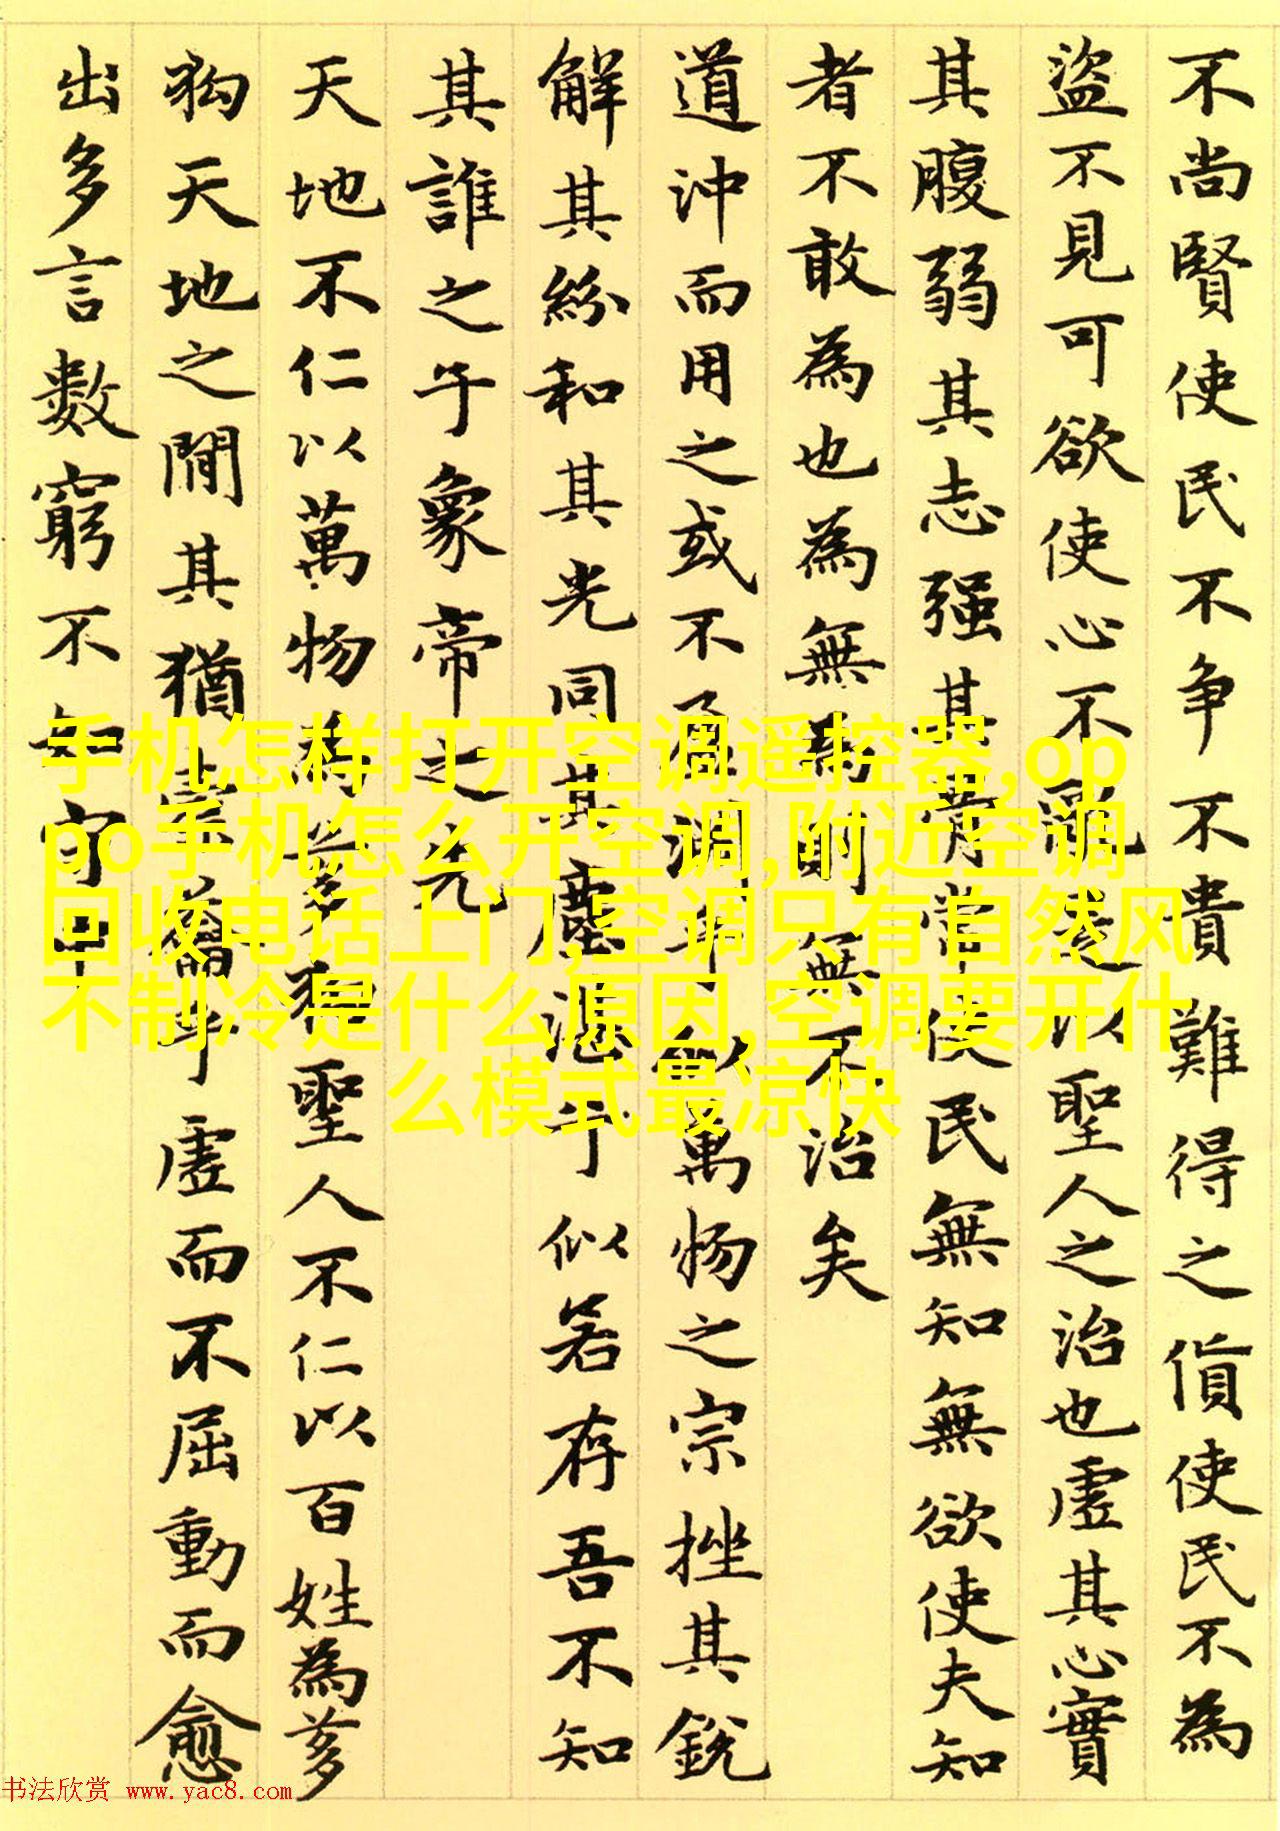 不尚賢使民不争不貴難得之貨使民不為
盜不見可欲使心不亂是以聖人之治也虛其心實
其腹弱其志强其骨常使民無知無欲使夫知
者不敢為也為無為則無不治矣
道沖而用之或不盈淵乎似萬物之宗挫其銳
解其紛和其光同其塵湛乎似若存吾不知
其誰之子象帝之先
天地不仁以萬物為芻狗聖人不仁以百姓為芻
狗天地之間其猶橐籥乎虛而不屈動而愈
出多言數窮不如守中
手机怎样打开空调遥控器,op
po手机怎么开空调,附近空调
回收电话上门,空调只有自然风
不制冷是什么原因,空调要开什
么模式最凉快
书法欣赏 www.yac8.com